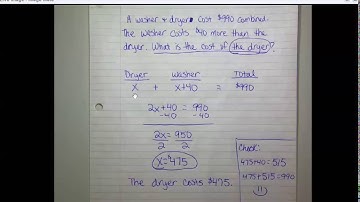 A washer & dryer cost $990 combined.
The washer costs $40 more than the
dryer. What is the cost of the dryer?
Dryer Washer Total
x + x+40 = $990
2x+40 = 990
-40 -40
2x = 950
2 2
x=$475
The dryer costs $475.
Check:
475+40=515
475+515=990